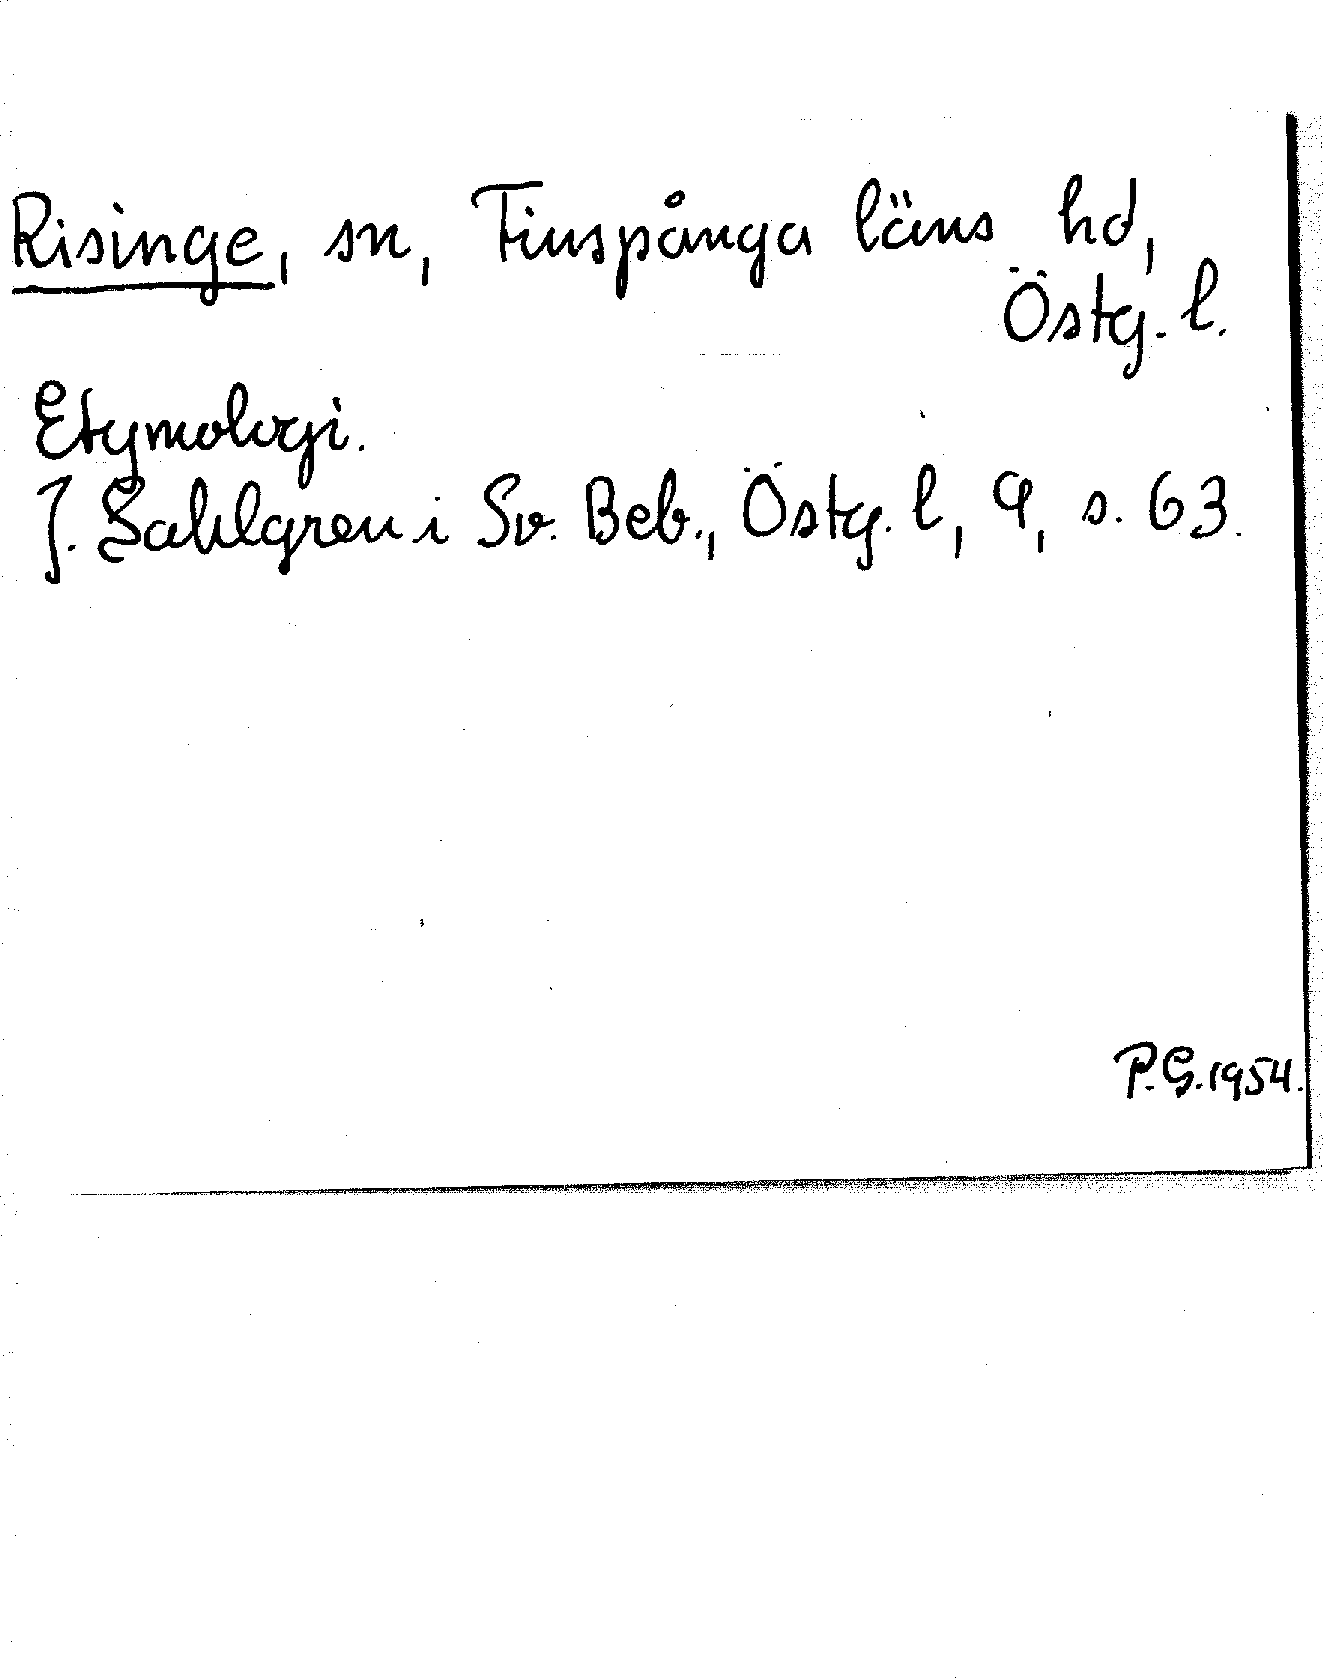 Risinge, sn, Finspånga läns hd,
Östg. l.
Etymologi.
J. Sahlgren i Sv. Beb., Östg. l, 9, s. 63.
P.G. 1954.